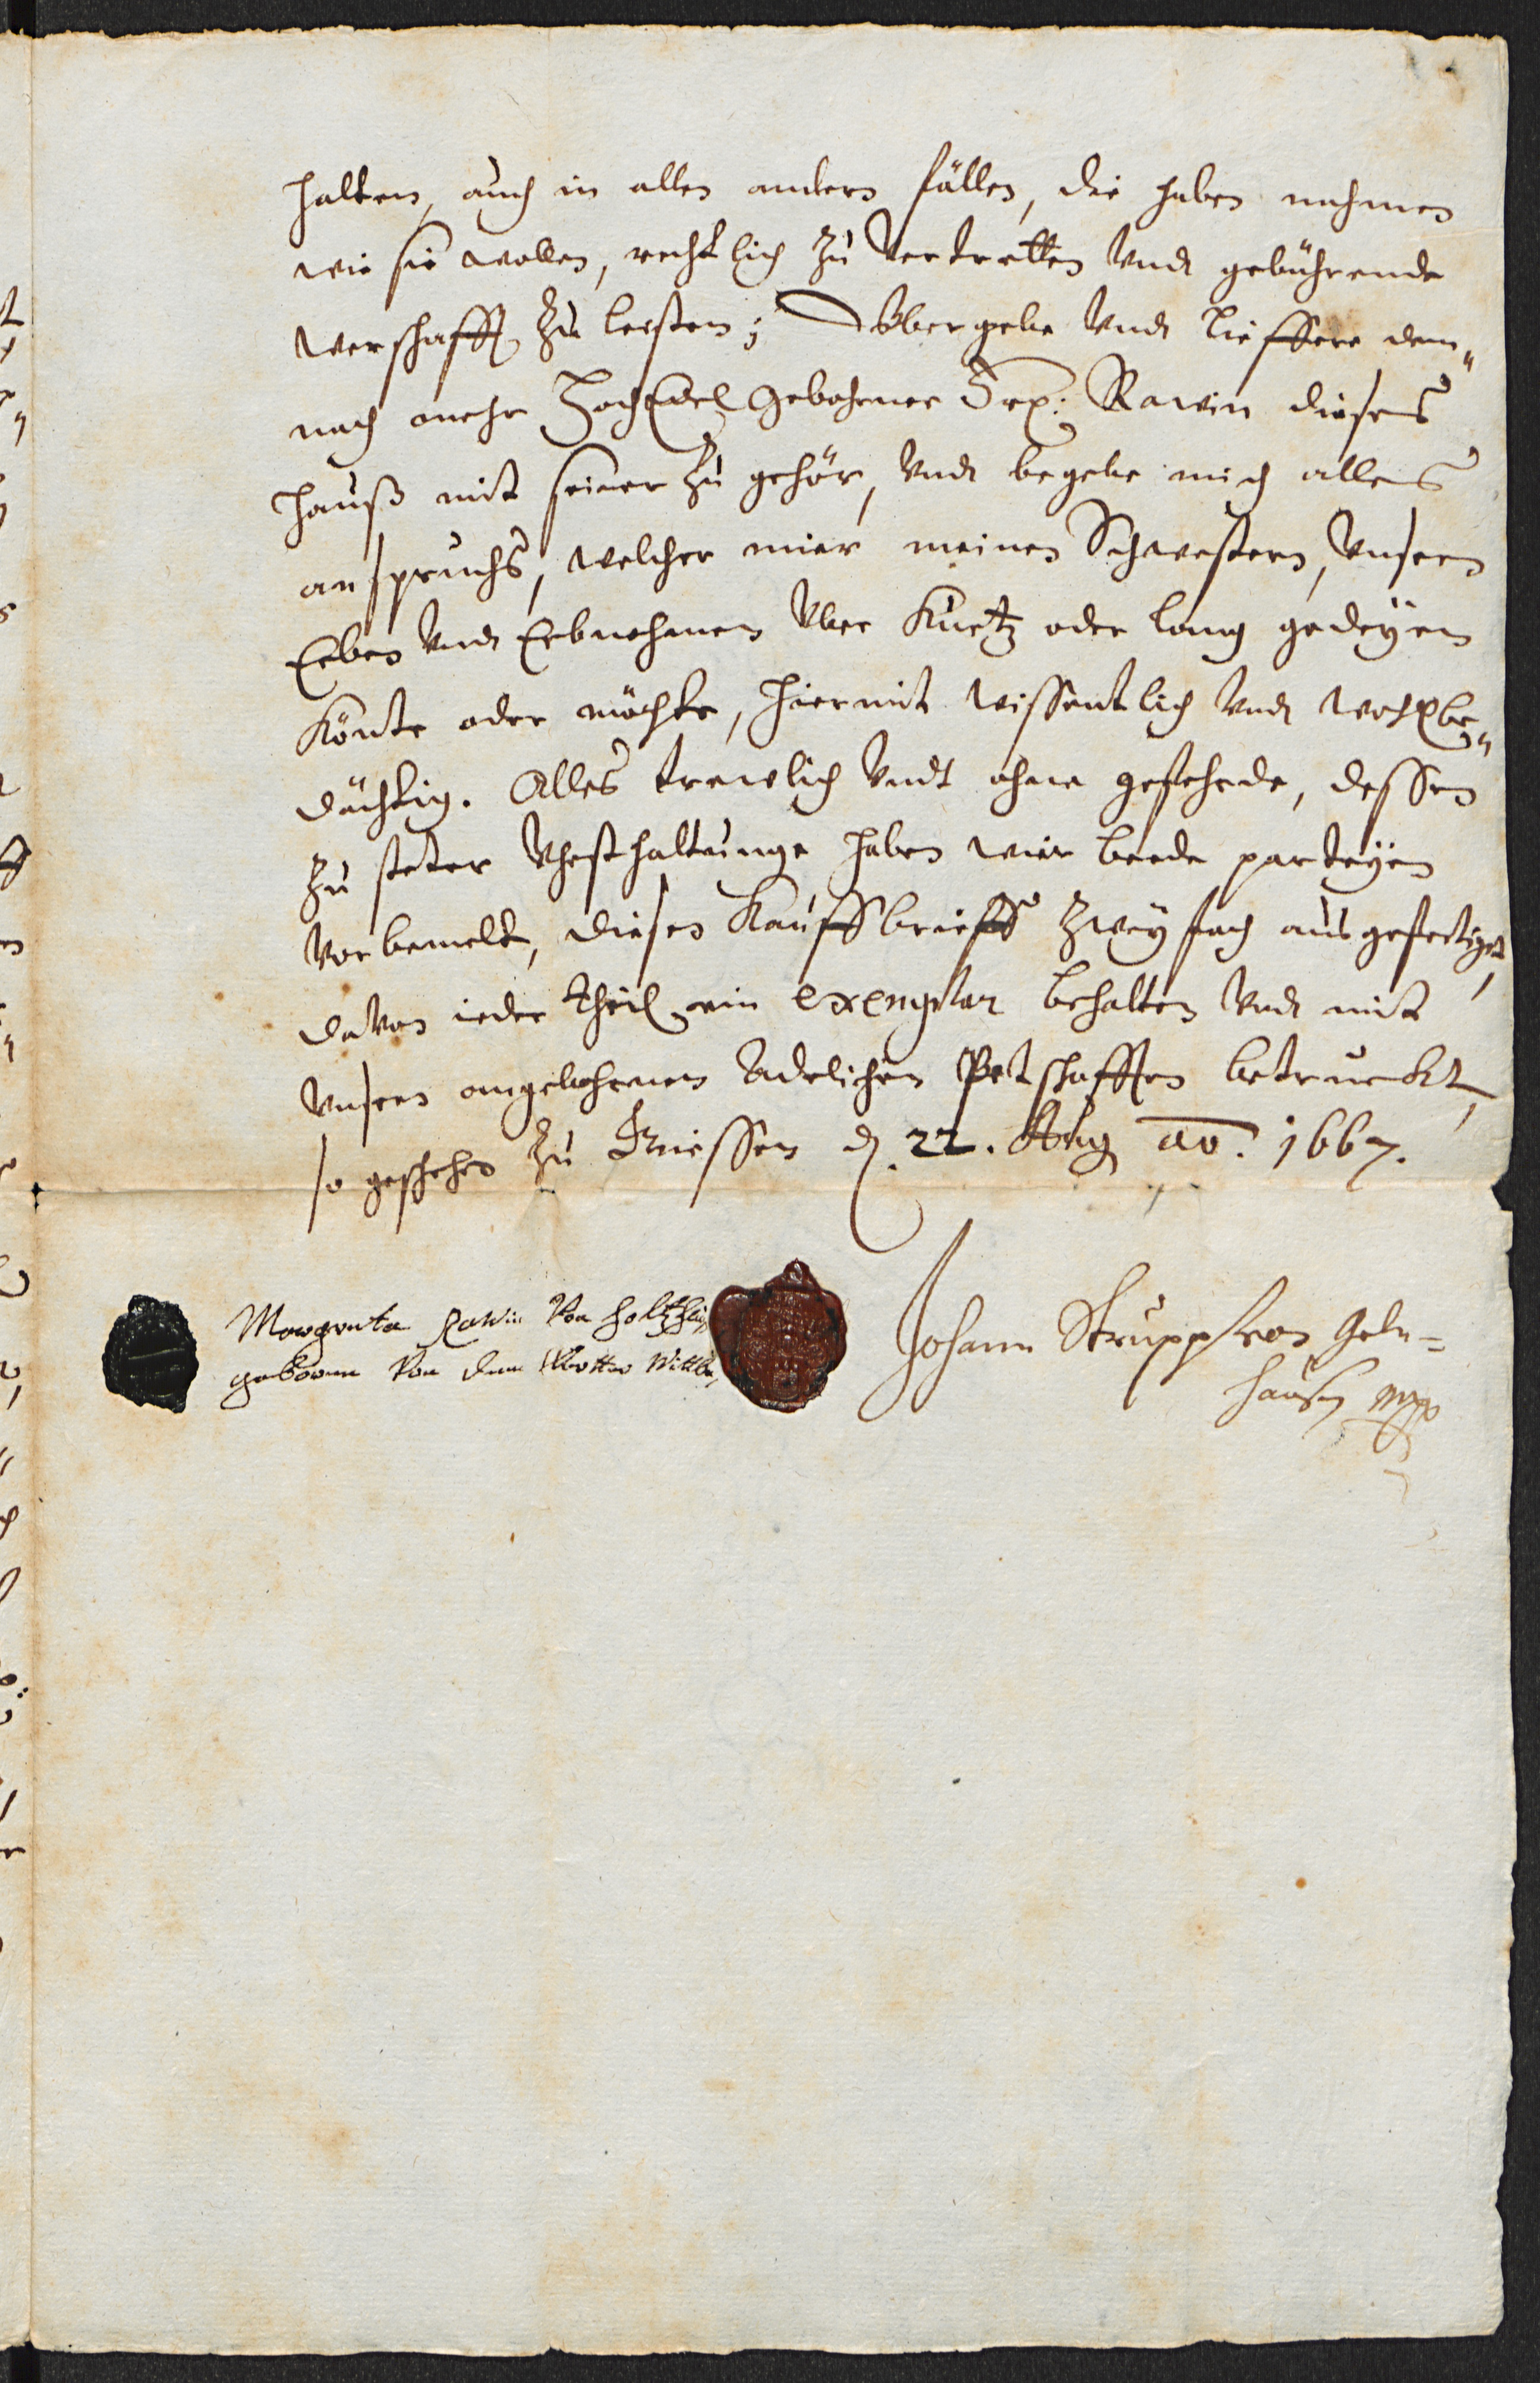 halten, auch in allen andern fällen, die haben nahmen
wie sie wollen, rechtlich zu Vertretten Vndt gebührende
Werschafft zu leisten; Übergebe Vndt Lieffere dem„
nach mehr HochEdel Gebohrner Rawin dieses
Hauß mit seiner zu gehör, Vndt begebe mich alles
anspruchs, welcher mier meinen Schwestern, Vnsern
Erben Vndt Erbnehmen Vber Kurtz oder lang gedeyen
Könte oder möchte, hiermit wissentlich Vndt wohlbe„
dächtig. Alles trewlich Vndt ohne gefehrde, dessen
zu steter Vhesthaltunge haben wier beede parteyen
Vorbemelt, diesen Kauffbrieff zweyfach ausgefertiget,
daVon ieder theil ein exemplar behalten Vndt mit
Vnsern angebohrnen Adelichen Petschafften betruckt,
so geschehen zu Giessen d. 22. Aug ao. 1667.
Margreta Rawin Von Holtzh
geborne Von dem Wittbe
Johann Strupp von Geln=
hausen mpp